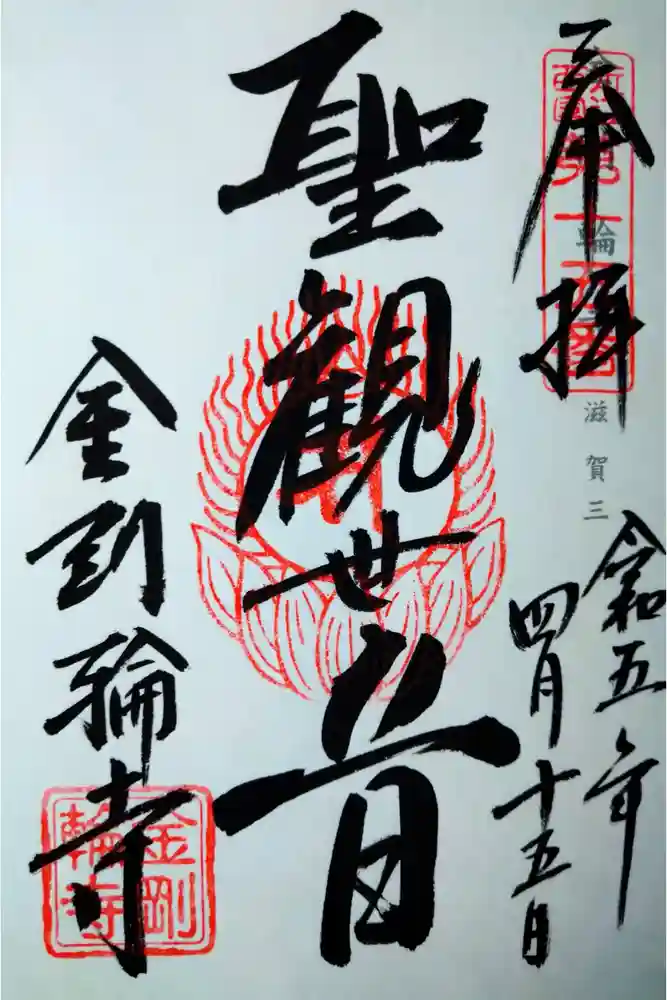 奉拝
輪
滋賀三
令和五年
四月十五日
聖觀世音
金剛輪寺
金剛
輪寺